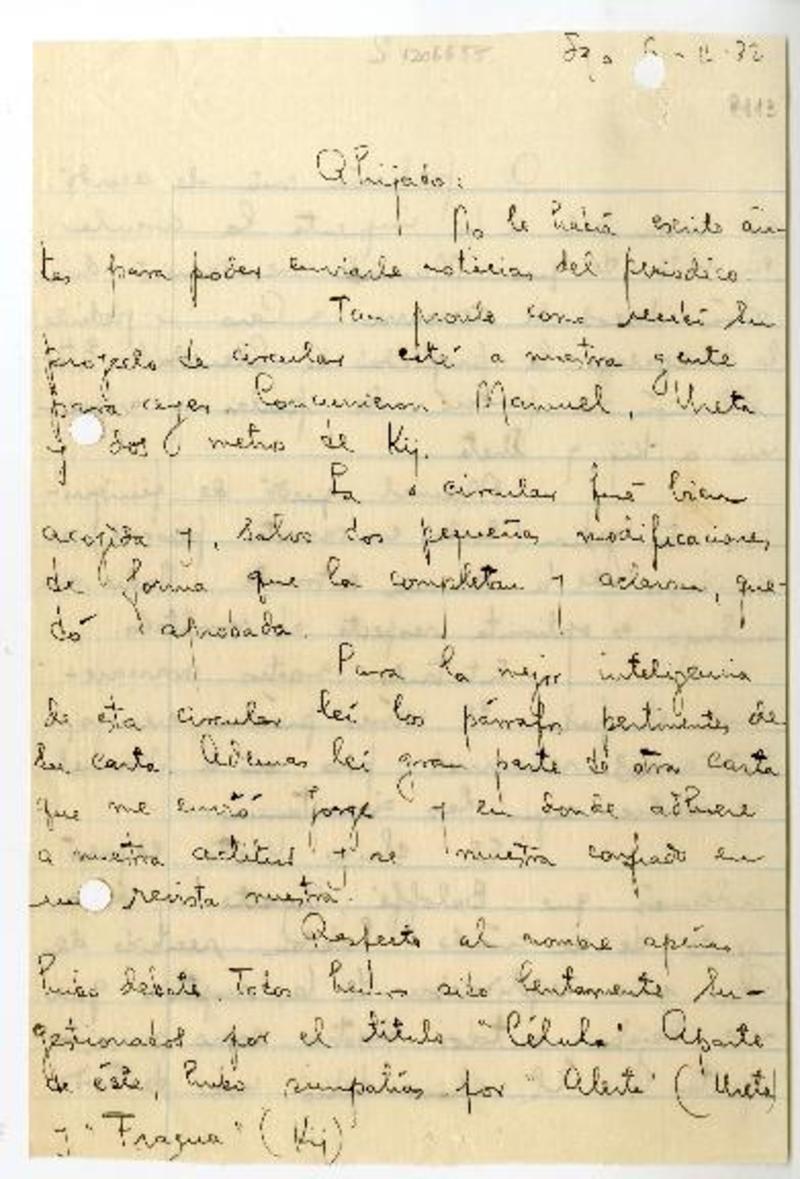 1206655
8113
Ahijado:
No le había escrito án-
tes para poder enviarle noticias del periodico.
Tan pronto como recibí su
proyecto de circular cité a nuestra gente
para ayer. Concurrieron Manuel, Ureta
y dos metros de Kij.
La circular fué bien
acogida y, salvo dos pequeñas modificaciones
de forma que la completan y aclaran, que-
dó aprobada.
Para la mejor inteligencia
de esta circular leí los párrafos pertinentes de
su carta. Ademas leí gran parte de otra carta
que me envió Jorge y en donde adhiere
a nuestra actitud y se muestra confiado en
una revista nuestra.
Respecto al nombre apénas
hubo debate. Todos hemos sido lentamente su-
gestionados por el título "Célula" Aparte
de éste, hubo simpatías por "Alerta" (Ureta)
y "Fragua" (Kij)